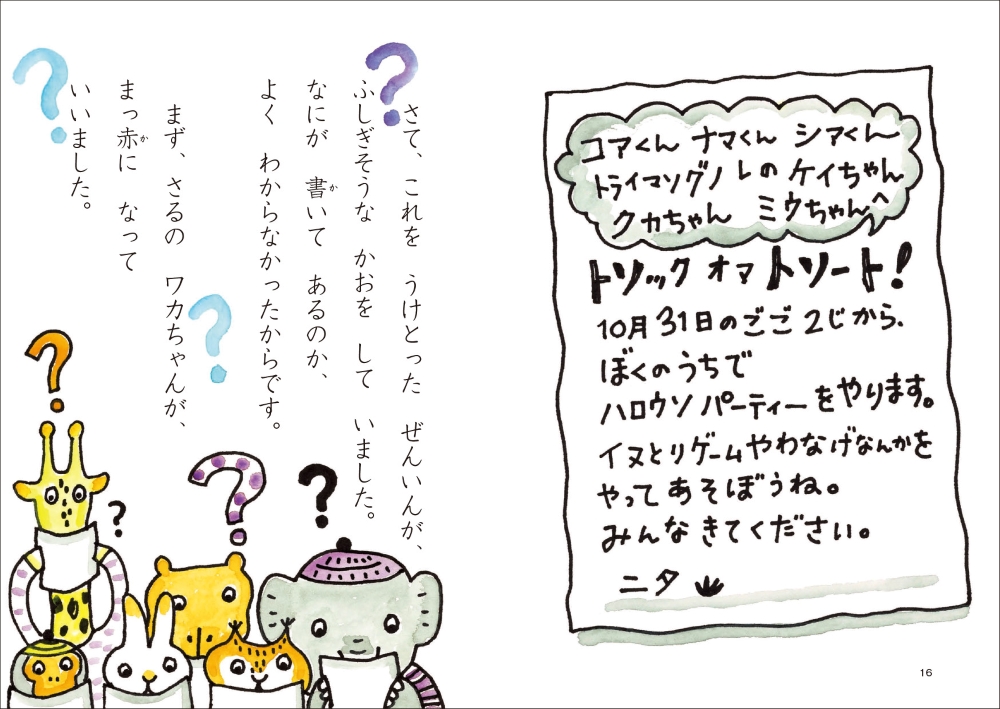 コアくん ナマくん シアくん
トライマソグノレの ケイちゃん
クカちゃん ミウちゃんへ
トソック オマ トソート!
10月31日のごご2じから、
ぼくのうちで
ハロウソ パーティーをやります。
イヌとりゲームやわなげなんかを
やって あそぼうね。
みんな きてください。
ニタ
16
さて、これを うけとった ぜんいんが、
ふしぎそうな かおを して いました。
なにが 書いて あるのか、
か
よく わからなかったからです。
まず、さるの ワカちゃんが、
まっ赤に なって
か
いいました。
?
?
?
?
?
?
?